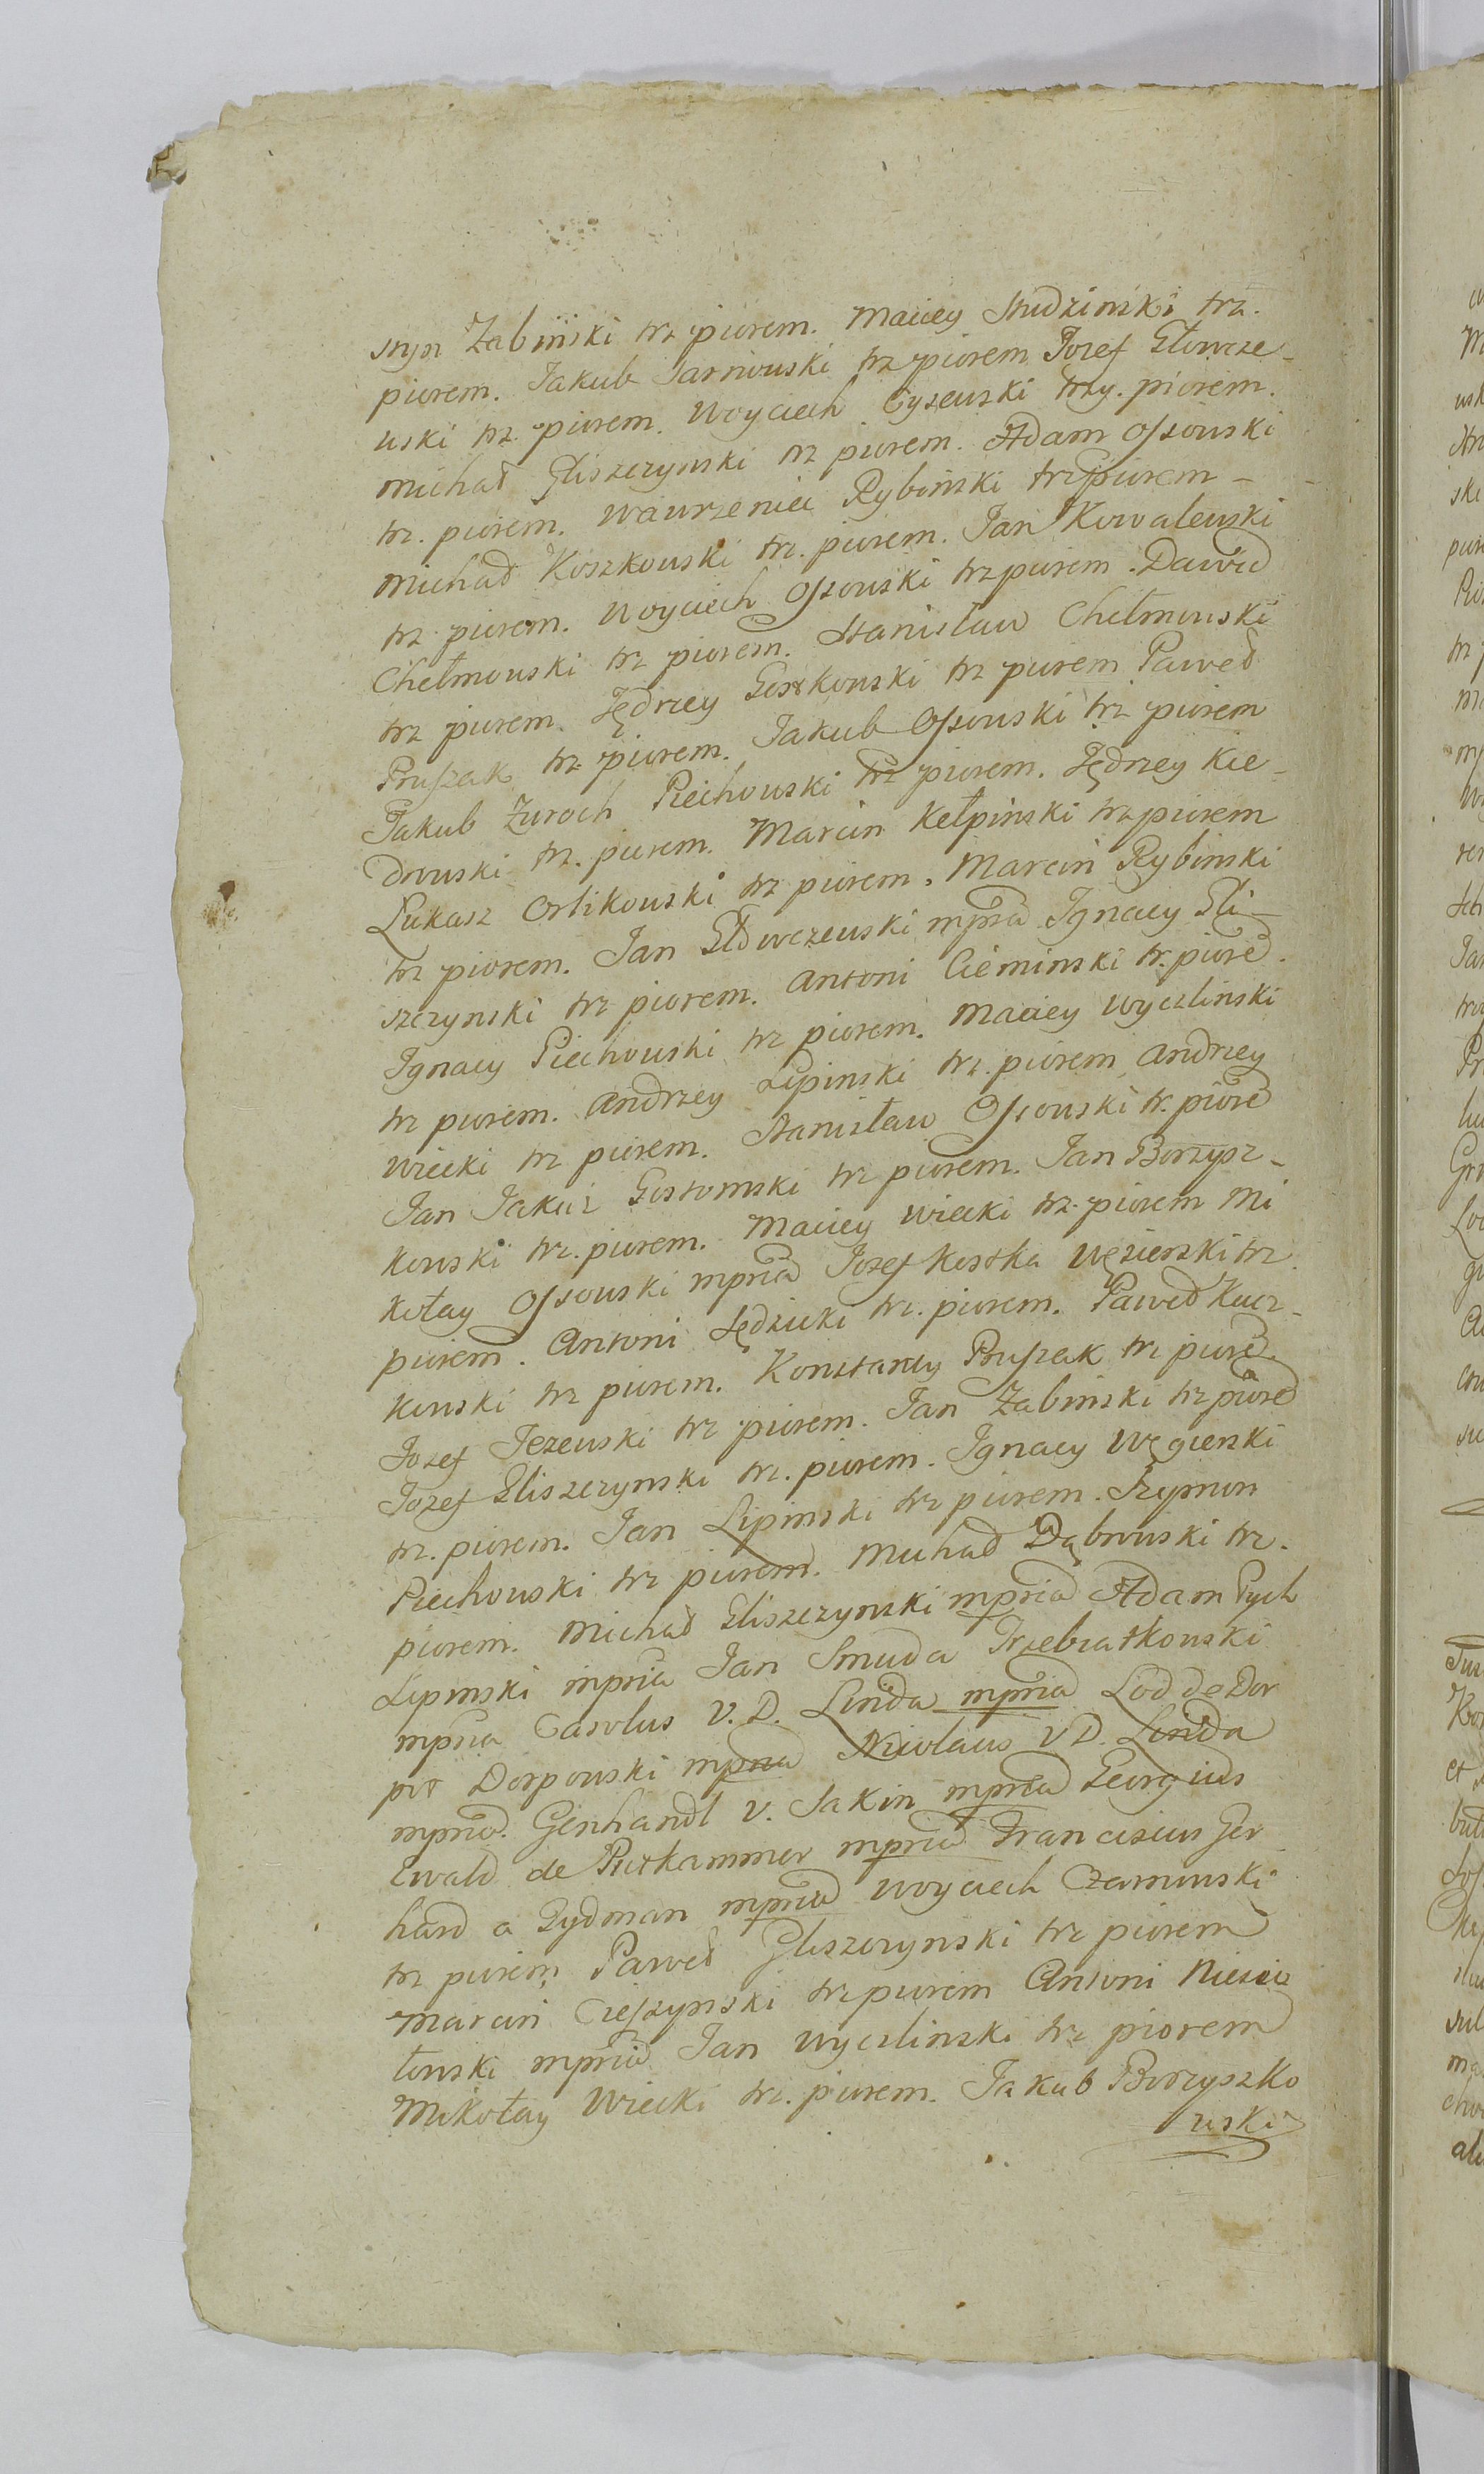 styn Zabiński trz piorem. Maciey Studzinski trz.
piorem. Jakub Tarnowski trz piorem Jozef Głowcze-
wski trz. piorem. Woyciech Cysewski trzy. piorem.
Michał Gliszczynski trz piorem. Adam Ossowski
trz. piorem. Wawrzeniec Rybinski trz piorem-
Michał Koszkowski trz. piorem. Jan Kowalewski
trz piorem. Woyciech Ossowski trz piorem. Dawid
Chełmowski trz piorem. Stanisław Chełmowski
trz piorem. Jędrzey Gostkowski trz piorem Paweł
Pruszak trz piorem. Jakub Ossowski trz piorem
Jakub Zuroch Piechowski trz piorem. Jędrzey Kie-
drowski trz. piorem. Marcin Kełpinski trz piorem
Łukasz Orlikowski trz piorem. Marcin Rybinski
trz piorem. Jan Głowczewski mpria Ignacy Gli-
szczynski trz piorem. Antoni Cieminski tr. piore.
Ignacy Piechowski trz piorem. Maciey Wyczlinski
trz piorem. Andrzey Lipinski trz. piorem Andrzey
Wiecki trz piorem. Stanisław Ossowski tr. piore
Jan Jakub Gostomski trz piorem. Jan Borzysz-
kowski trz. piorem. Maciey Wiecki trz. piorem Mi
kołay Ossowski mpria Jozef Kostka Węsierski trz
piorem. Antoni Jędzicki trz. piorem. Paweł Kucz-
kowski trz piorem. Konstanty Pruszak trz piore.
Jozef Jezewski trz piorem. Jan Zabinski trz piore
Jozef Gliszczynski trz. piorem. Ignacy Węgierski
trz. piorem. Jan Lipinski trz piorem. Szymon
Piechowski trz piorem. Michał Dąbrowski trz.
piorem. Michał Gliszczynski mpria Adam Pych
Lipinski mpria Jan Smuda Trzebiatkowski
mpria Carolus V. D. Linda mpria Lod de Dor
pos Dorpowski mpria Nicolaus V D. Linda
mpria. Genhandl v. Jakin mpria Georgius
Ewald de Putkammer mpria Franciscus Ger
hard a Rydman mpria Woyciech Czarnowski
trz piorem Paweł Gliszczynski trz piorem
Marcin Cieszynski trz piorem Antoni Niesio
łowski mpria Jan Wyczlinski trz piorem
Mikołay Wiecki trz. piorem. Jakub Borzyszko
wski